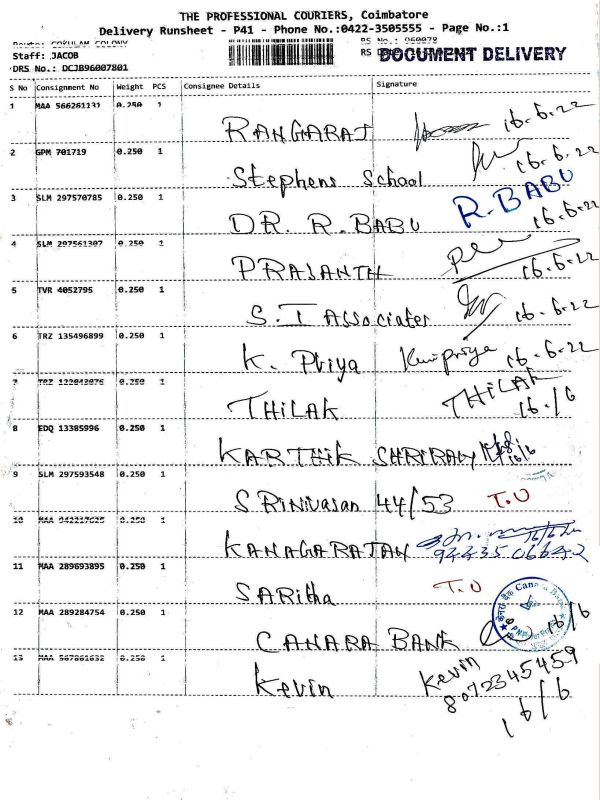 THE PROFESSIONAL COURIERS, Coimbatore
Delivery Runsheet - P41 - Phone No.:0422-3505555 - Page No.:1
Route: GOKULAM COLONY RS No.: 960078
Staff: JACOB RS DOCUMENT DELIVERY
DRS No.: DCJB96007801
S No Consignment No Weight PCS Consignee Details Signature
1 MAA 566261131 0.250 1 RANGARAJ 16.6.22
2 GPM 701719 0.250 1 Stephens School 16.6.22
3 SLM 297570785 0.250 1 DR. R. BABU R. BABU 16.6.22
4 SLM 297561307 0.250 1 PRASANTH 16.6.22
5 TVR 4052795 0.250 1 S. I Associates 16.6.22
6 TRZ 135496899 0.250 1 K. Priya 16.6.22
7 TRZ 0.250 1 THILAK THILAK 16/6
8 EDQ 13385996 0.250 1 KARTHIK SHRIRAM 16/6
9 SLM 297593548 0.250 1 SRINIVASAN 44/53 T.U
10 MAA 0.250 1 KANAGARAJAN 16/6/22
9443506642
11 MAA 289693895 0.250 1 SARITHA T.U
12 MAA 289284754 0.250 1 CANARA BANK 16/6
13 MAA 0.250 1 Kevin Kevin
8072345459
16/6